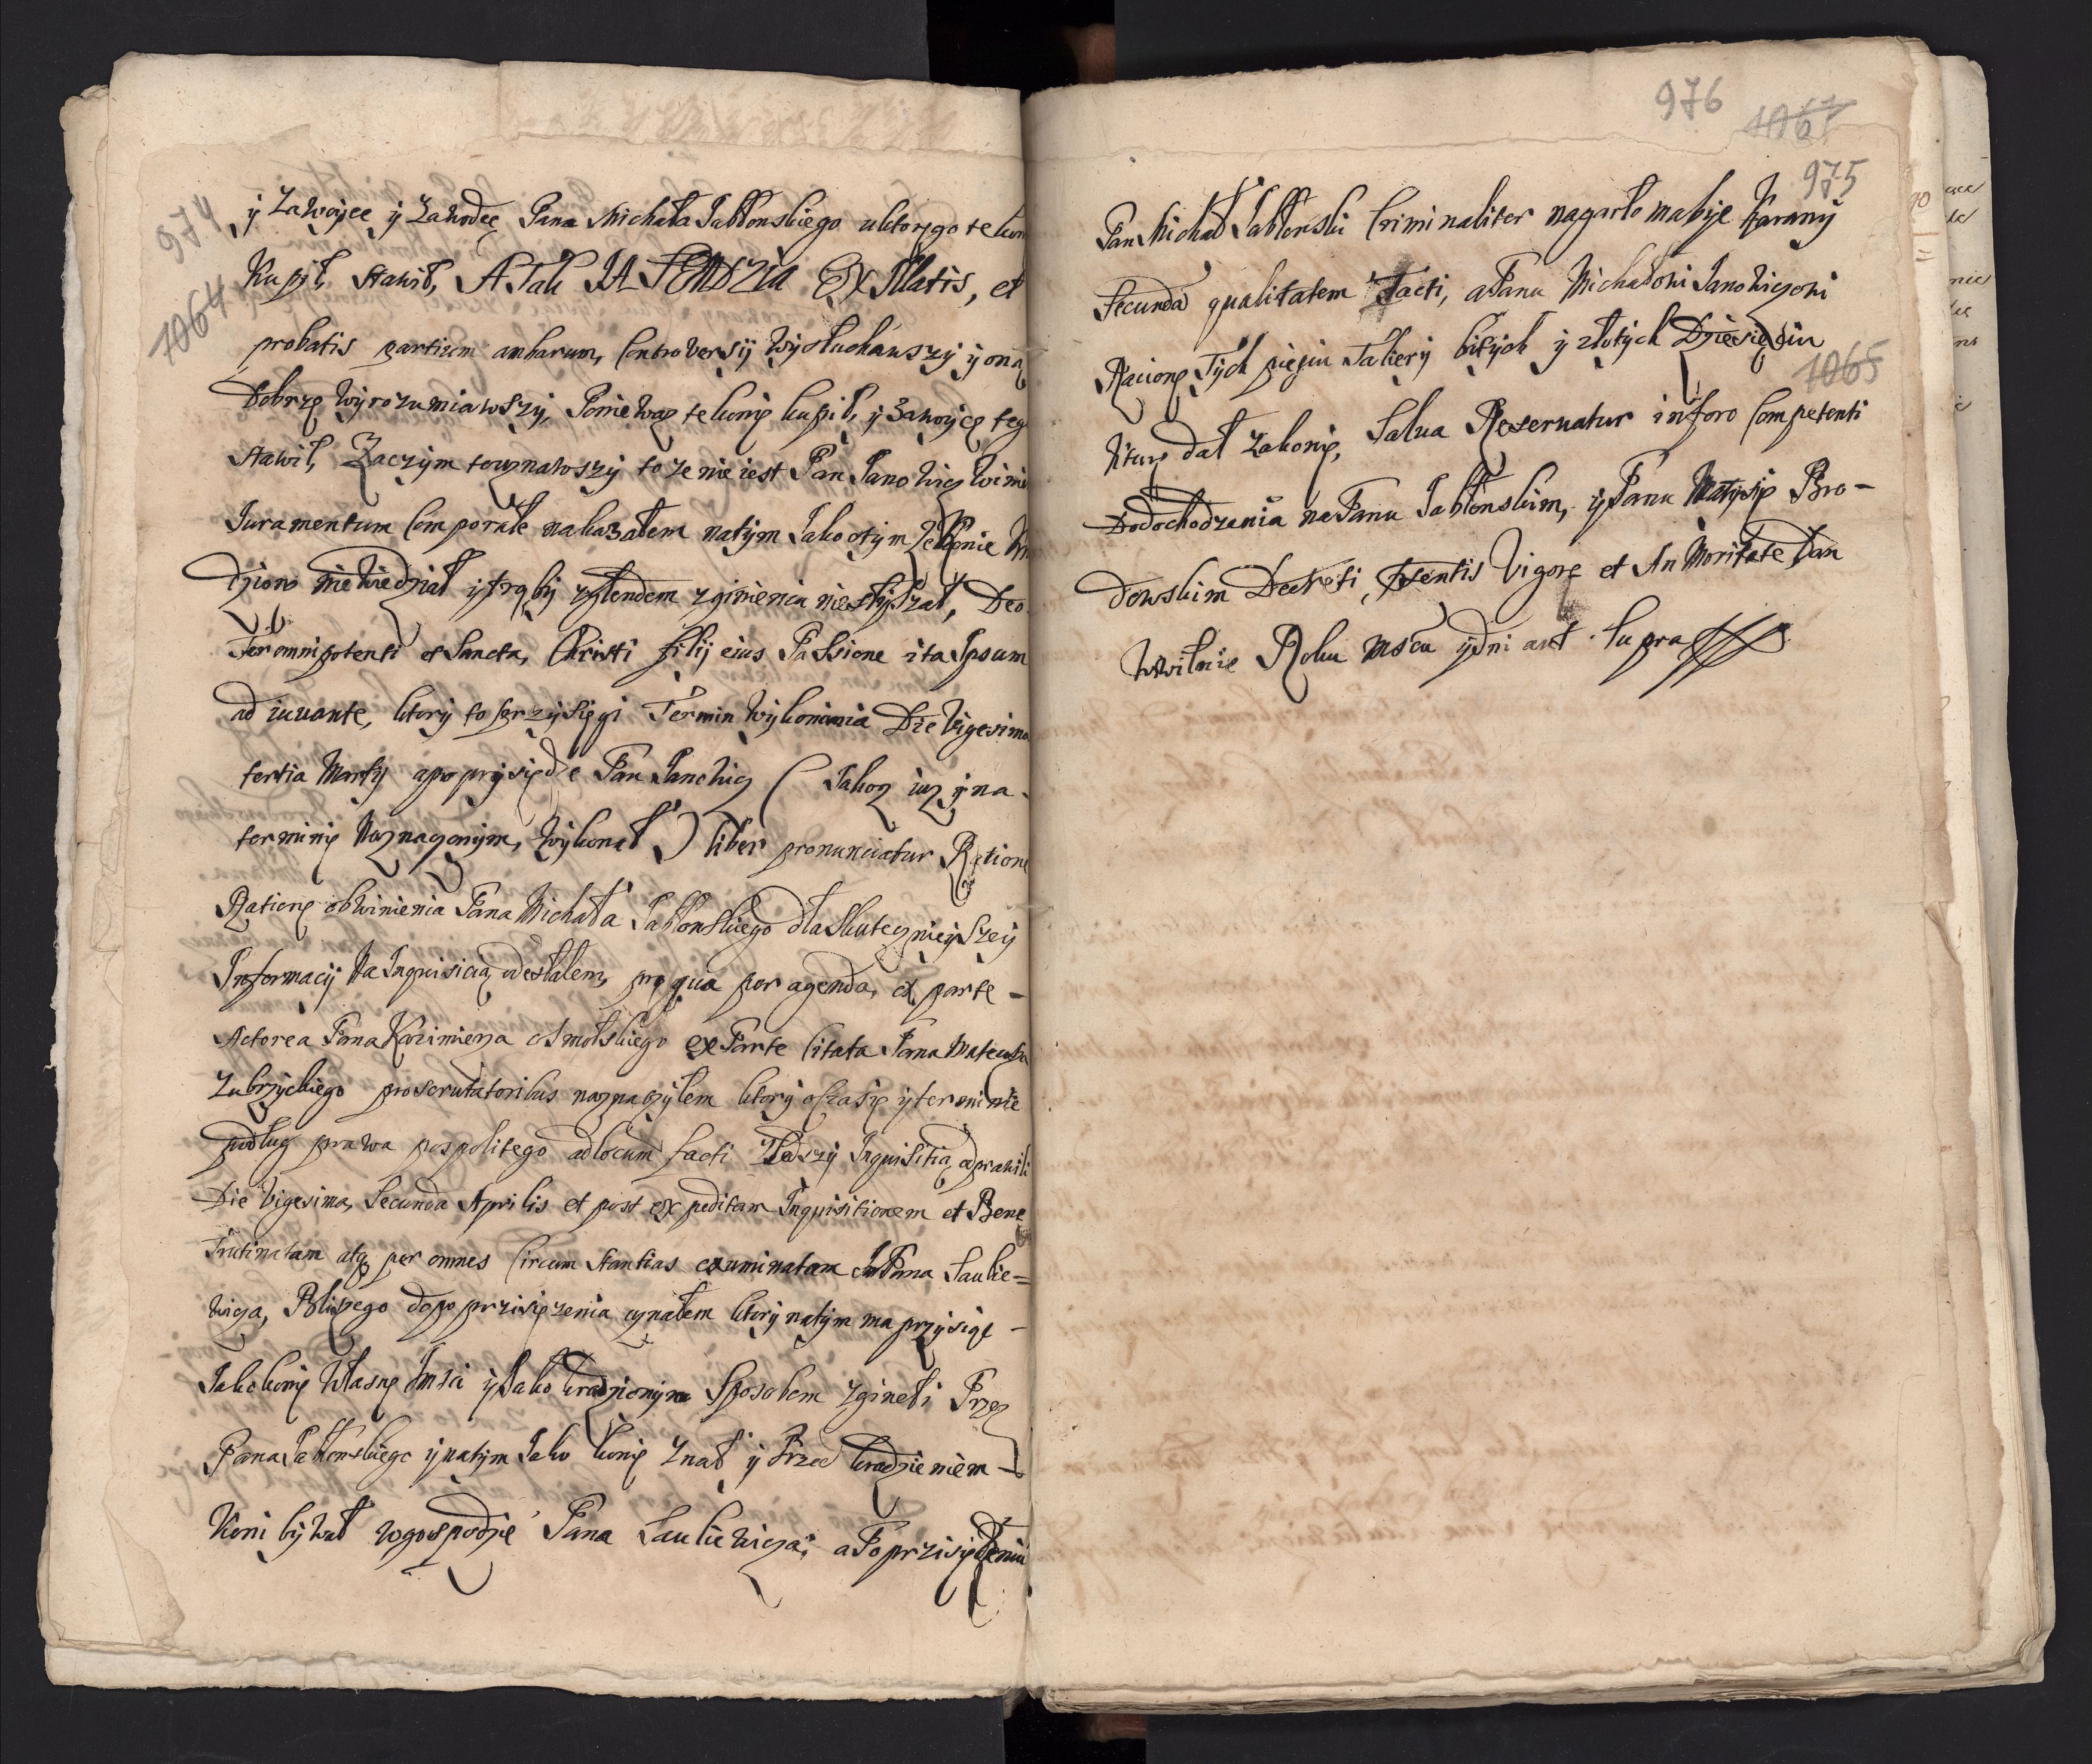 974
1064
y Zawoyce y Zawodcę Pana Michała Jabłonskiego uktorego te kon
Kupił, Stawił, A Tak JA SENDZIA Ex Illatis, et
probatis partium ambarum, Controversij wysłuchawszy y oną
Dobrze wyrozumiawszy, Poniewasz te konie kupił, y Zawoyce teg
Stawił, Zaczym to uznawszy to ze nie iest Pan Janowicz wini
Juramentum Comporale nakazałem natym Jako o tym ze konie kra
dzione nie wiedział y trąby zylendem zginienia nie słyszał, Deo
Ter omnipotenti et Sancta, Christi filij eius Passione ita Ipsum
ad iuuante, ktory to przysięgi Termin wykonania Die Vigesima
tertia Martij a po przysiędze Pan Janowicz ( Jakoz iuz y na
terminie Naznaczonym, wykonał ) liber pronunciatur Ratione
Ratione obwinienia Pana Michała Jabłonskiego dla Skutecznieyszey
Informacij Na Inquisicią odesłałem, pro qua per agenda, ex parte -
Actorea Pana Kazimierza Osmolskiego ex Parte Citata Pana Mateusza
Zubrzyckiego pro scrutatoribus naznaczyłem ktorzy o czasie y terminie
podług prawa pospolitego ad locum facti Zjadszy Inquisitią odprawili
Die Vigesima, Secunda Aprilis et post expeditam Inquisitionem et Bene
Trutinatam atq per omnes Circum stantias examinatam Ja Pana Saulie=
wicza, Blisszego do po przisiężenia uznałem ktory natym ma przysiąc -
Jako konie własne Jmsci y Jako kradzionym Sposobem zgineli Przez
Pana Jabłonskiego y natym Jako konie znał y Przed kradzieniem -
Koni bywał w gospodzie Pana Sauliewicza, a Po przisiędzeniu
976
1067
975
Pan Michał Jabłonski Criminaliter na garło ma byc Karany
Secunda qualitatem Facti, a Panu Michałowi Janowiczowi
Racione Tych pięciu Talery bitych y złotych Dziesięciu
1065
kture dał za konie, Salua Reseruatur in foro Competenti
Do dochodzenia na Panu Jabłonskim, y Panu Matysie Bro-
dowskim Decreti, Psentis Vigore et Authoritate Dan
w Wilnie Roku msca y dni aut Supra